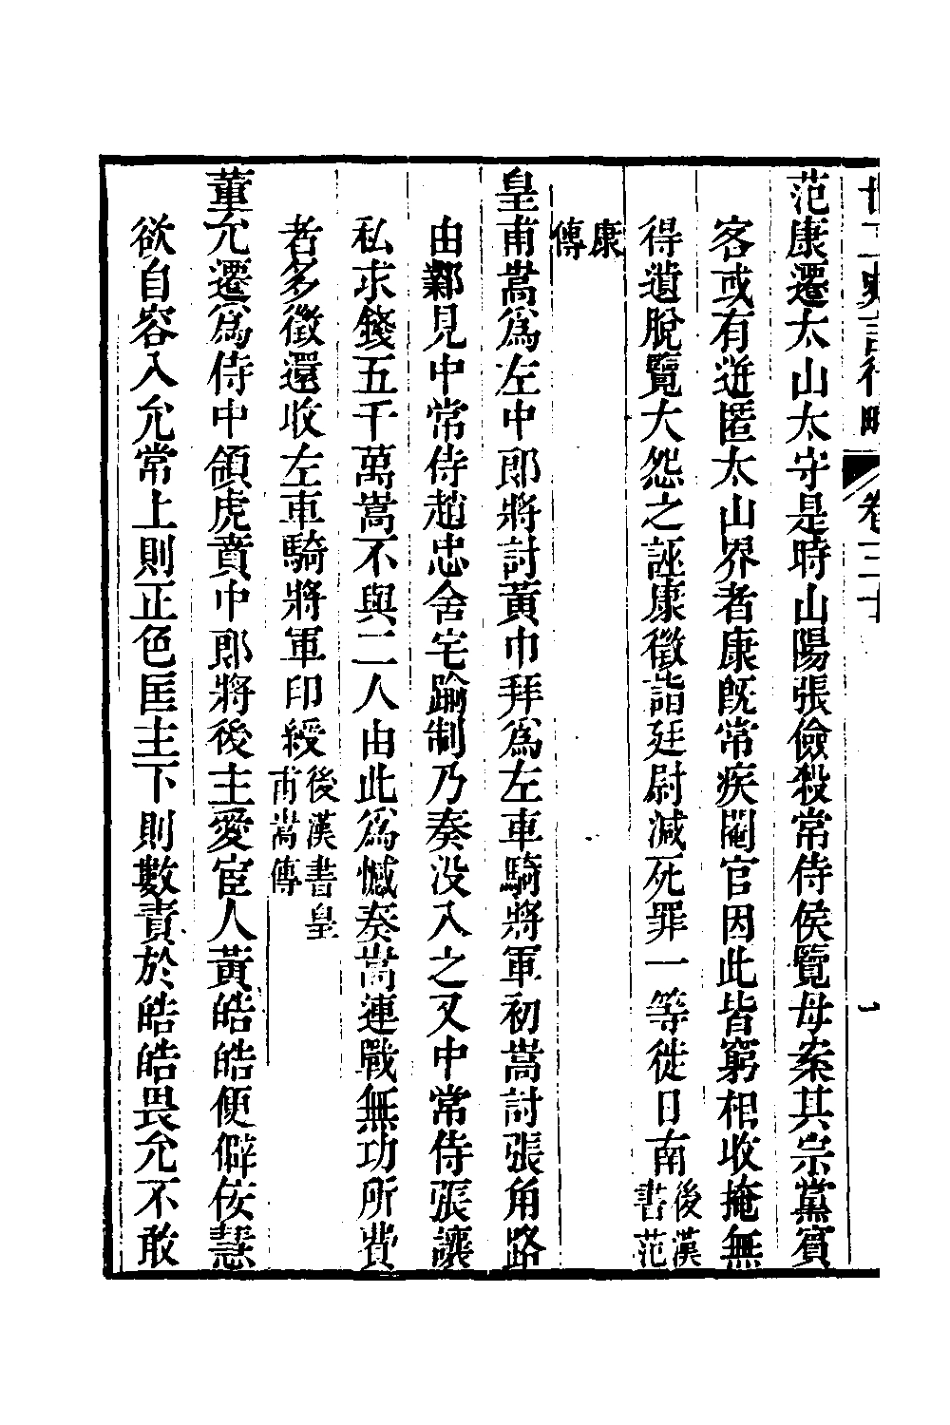 廿二史言行略 卷三十
范康遷太山太守是時山陽張儉殺常侍侯覽母案其宗黨賓
客或有迸匿太山界者康旣常疾閹官因此皆窮相收掩無
得遺脫覽大怨之誣康徵詣廷尉減死罪一等徙日南後漢書范
康傳
皇甫嵩爲左中郎將討黃巾拜爲左車騎將軍初嵩討張角路
由鄴見中常侍趙忠舍宅踰制乃奏沒入之又中常侍張讓
私求錢五千萬嵩不與二人由此爲憾奏嵩連戰無功所費
者多徵還收左車騎將軍印綬後漢書皇甫嵩傳
董允遷爲侍中領虎賁中郎將後主愛宦人黃皓皓便僻佞慧
欲自容入允常上則正色匡主下則數責於皓皓畏允不敢